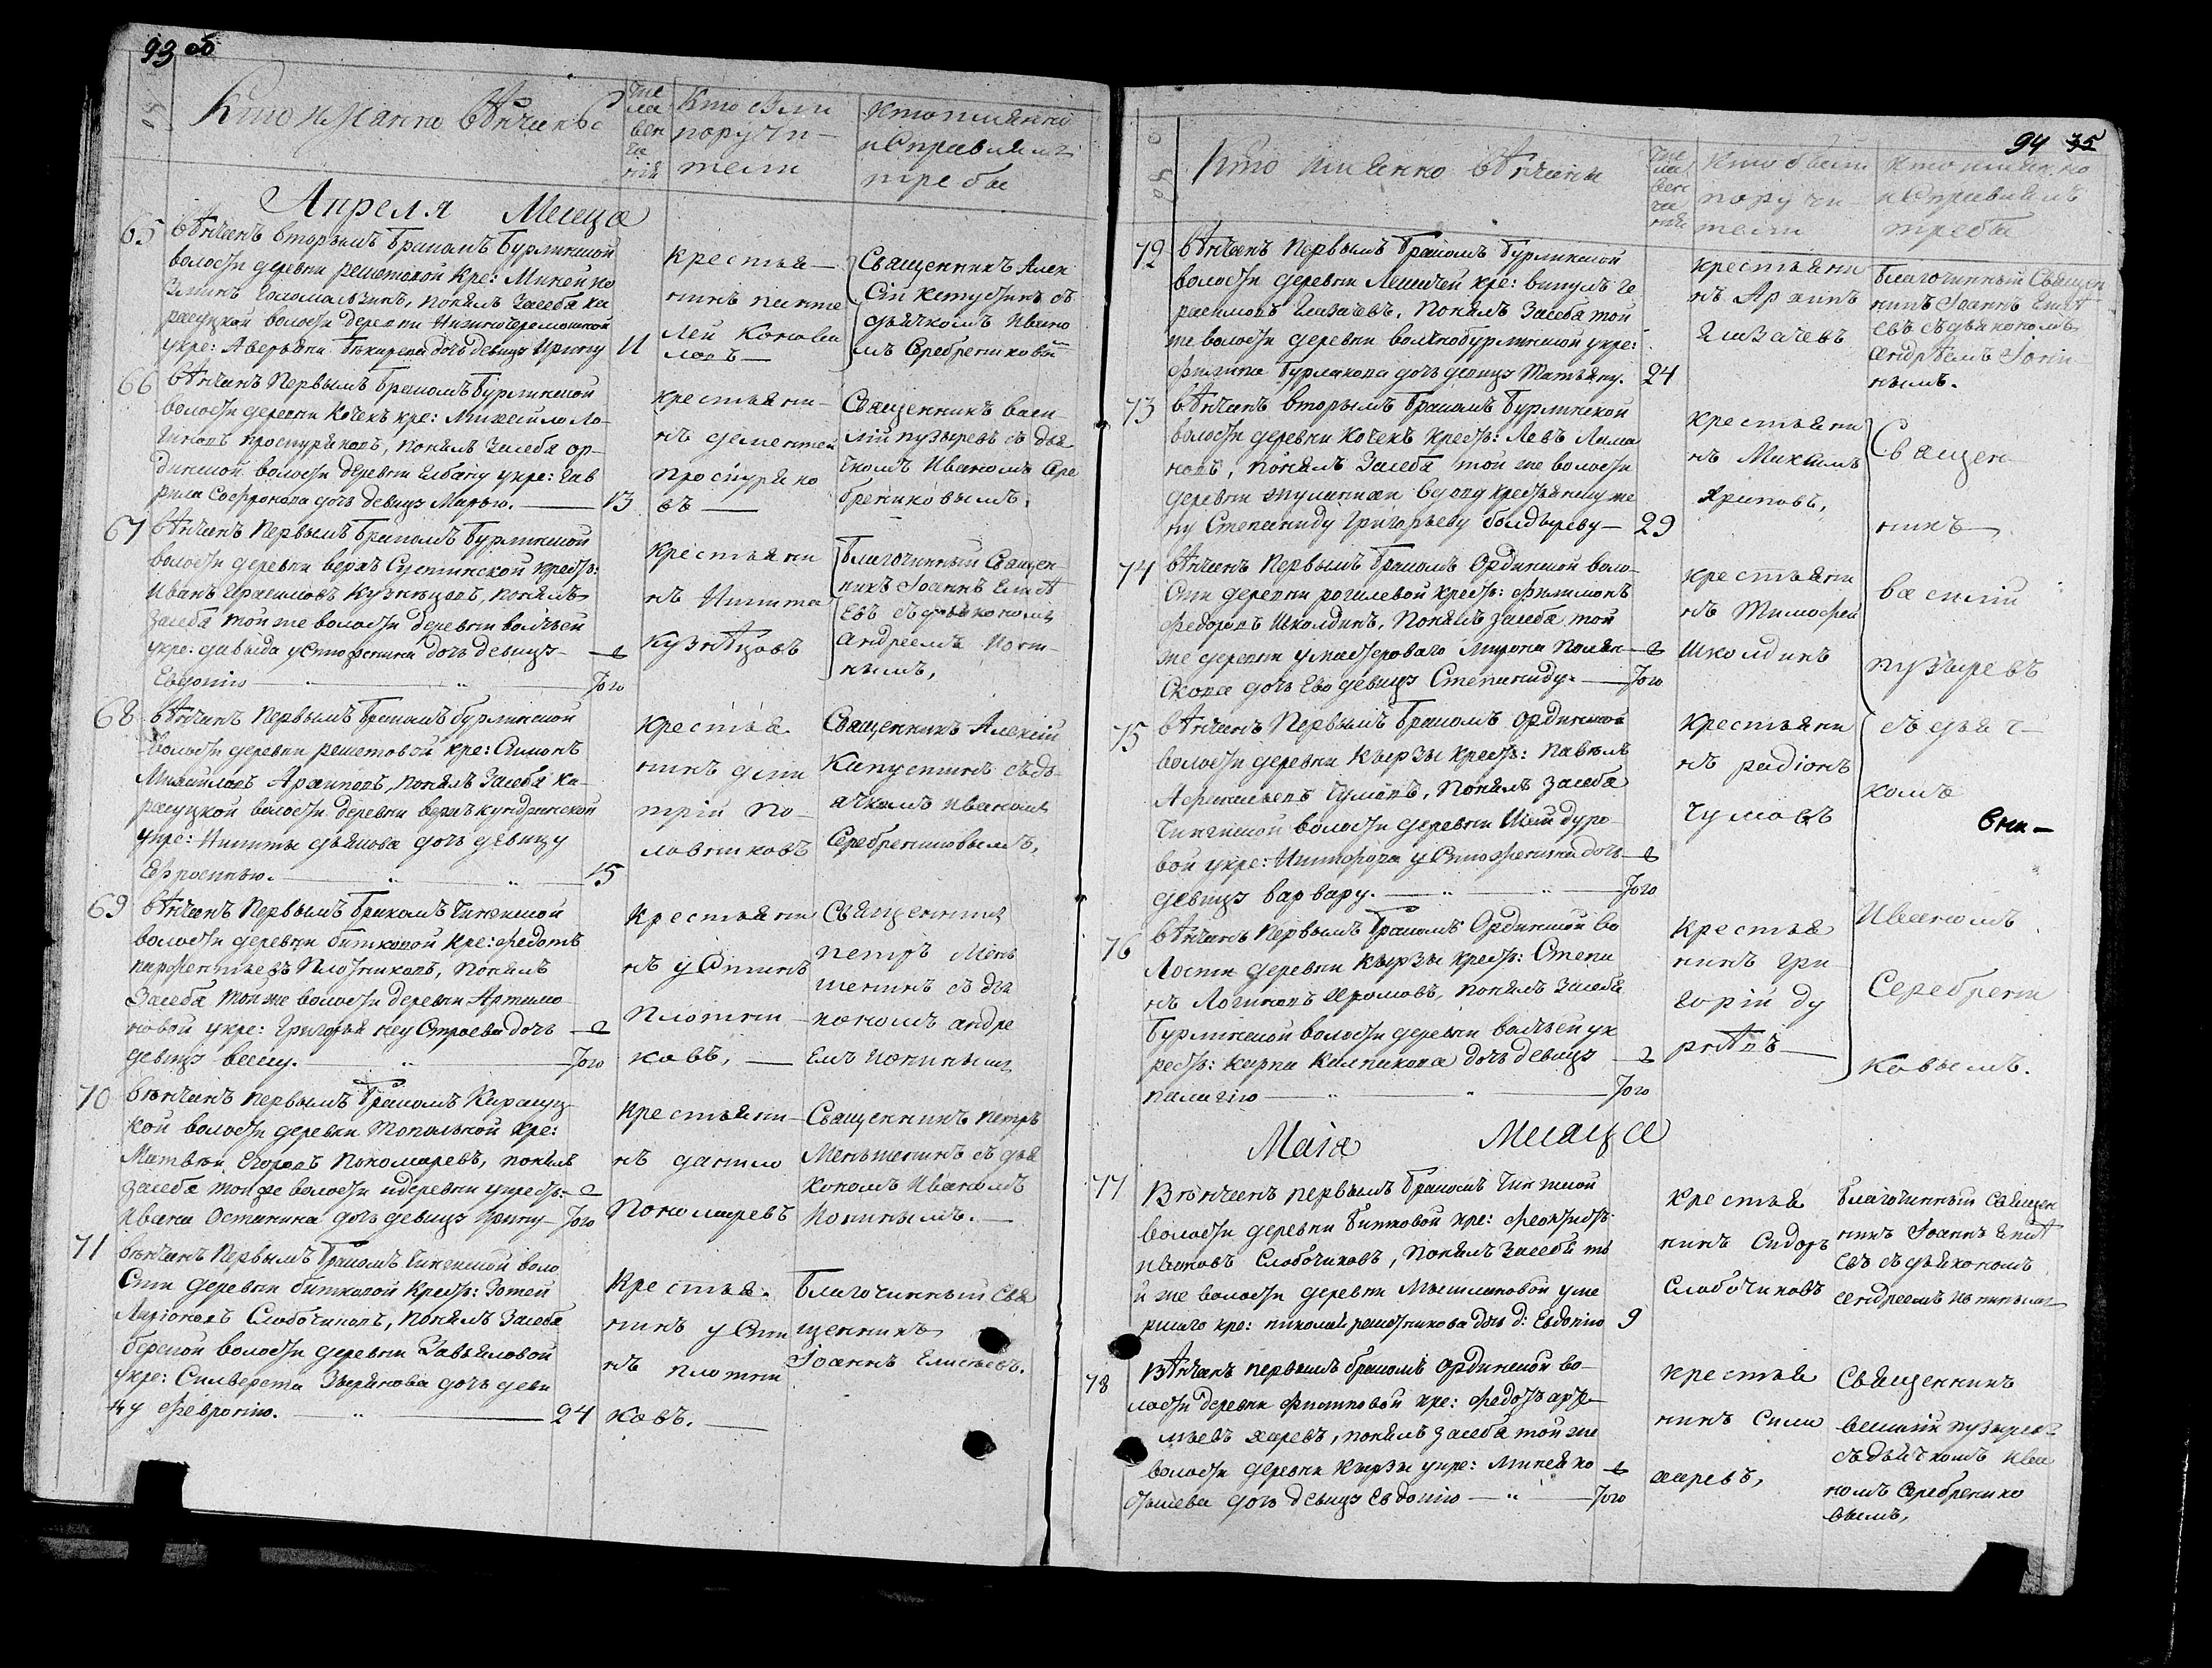 93 об
Кто имянно вѣнчаны
чис
ла
вен
ча
нія
Кто были
поручи-
тели
Кто имянно
исправлялъ
требы
Апреля Месеца
65
вѣнчанъ вторымъ бракомъ Бурлинской
волости деревни решетовой кре: Миней
понялъ засебя ка
расуцкой волости деревни
укре: Аверьяна дочь девицу Ирину
11
Крестья-
нинъ панте
лей Конова
ловъ
Священникъ Алек
сій капустинъ съ
дьячкомъ Ивано
мъ Серебрениковы
66
вѣнчанъ Первымъ бракомъ Бурлинской
волости деревни Кочекъ кре: Михайло Ло-
гиновъ проскуряковъ, понялъ засебя ор-
динской волости деревни Елбану укре: Гав
рила Софронова дочь девицу Марью.
13
крестьяни-
нъ дементей
проскуряко
въ
Священникъ васи
лій пузыревъ съ дья
чкомъ Иваномъ Сере
брениковымъ.
67
вѣнчанъ Первымъ бракомъ Бурлинской
волости деревни верхъ Сузунской крестъ:
Иванъ Кузнецовъ, понялъ
засебя той же волости деревни волчьей
укре: давыда устюженина дочь девицу
Евдокію
2
Того
крестьяни
нъ Никита
Кузнѣцовъ
Благочинный Священ-
никъ Іоаннъ Елисѣ
евъ съ дьякономъ
андреемъ Ионин-
нымъ,
68
вѣнчанъ Первымъ бракомъ бурлинской
волости деревни решетовой кре: Симонъ
Михайловъ Архиповъ, понялъ засебя ка-
расуцкой волости деревни верхъ кундранской
укре: Никиты дьякова дочь девицу
Ефросинью.
15
крестья
нинъ дми
трій по-
ловниковъ
Священникъ Алексій
Капустинъ съ дь-
ячкомъ иваномъ
Серебрениковымъ,
69
вѣнчанъ Первымъ бракомъ Чингиской
волости деревни битковой кре: федотъ
парфентьевъ Плотниковъ, понялъ
засебя той же волости деревни Артамо
новой укре: Григорья неустроева дочь
девицу вассу.
2
Того
Крестьяни
нъ устинъ
Плотни-
ковъ,
Священникъ
петръ Мень
шенинъ съ дья
кономъ андре
емъ Ионинымъ
70
вѣнчанъ первымъ бракомъ Карасуц
кой волости деревни Топольной кре:
Матвей Егоровъ Пономаревъ, понялъ
засебя той же волости идеревни укрестъ:
Ивана Останина дочь девицу Ирину
2
Того
Крестьяни-
нъ данило
Пономаревъ
Священникъ петръ
Меньшенинъ съ дья
кономъ Иваномъ
Ионинымъ.
71
вѣнчанъ Первымъ бракомъ Чингиской воло
сти деревни битковой Крестъ: Зотей
Ларіоновъ Слободчиковъ, понялъ засебя
берской волости деревни Завьяловой
укре: Силверста Зырянова дочь деви
цу Февронію.
24
Крестья-
нинъ усти
нъ плотни
ковъ.
Благочинный Свя
щенникъ
Іоаннъ Елисѣевъ.
94 35
Кто имянно вѣнчаны
чис
ла
вен
ча
нія
Кто были
поручи-
тели
Кто имян,но
исправлялъ
требы
72
вѣнчанъ Первымъ бракомъ Бурлинской
волости деревни кре: викулъ Ге
расимовъ Глазачевъ, понялъ засебя той
же волости деревни волчнобурлинской укре:
филипа Бурлакова дочь девицу Татьяну.
24
крестьяни
нъ Архипъ
Глазачевъ
Благочинный Священ
никъ Іоаннъ Елисѣ
евъ съ дьякономъ
андрѣемъ Іонин-
нымъ.
73
вѣнчанъ вторымъ бракомъ Бурлинской
волости деревни Кочекъ крестъ: Левъ
понялъ засебя той же волости
деревни вдову крестьянску же
ну Степаниду Григорьеву болдыреву
29
крестьяни
нъ Михаилъ
Архиповъ,
Священ
никъ
василій
пузыревъ
съ дьяч-
комъ
Иваномъ
Серебрени
ковымъ.
74
вѣнчанъ Первымъ бракомъ Ординской воло-
сти деревни рогалевой крестъ: Филимонъ
федоровъ Школдинъ, понялъ засебя той
же деревни умастероваго Мирона Полян-
скова дочь Ево девицу Степаниду.
2
Того
крестьяни
нъ Тимофей
Школдинъ
75
вѣнчанъ Первымъ бракомъ ординской
волости деревни Кырзы крестъ: павелъ
Афанасьевъ Чумовъ, понялъ засебя
Чингиской волости деревни Шайдуро
вой укре: Никифора устюженина дочь
девицу варвару.
2
Того
крестьяни
нъ радіонъ
Чумовъ
вни-
76
вѣнчанъ Первымъ бракомъ Ординской во
лости деревни Кырзы крестъ: Степа
нъ Логиновъ Хромовъ, понялъ засебя
Бурлинской волости деревни волчьей ук
рестъ: карпа Калпакова дочь девицу
палагію
2
Того
крестья
нинъ Гри
горій ду
рнѣвъ
Маія Месяца
77
Вѣнчанъ первымъ бракомъ Чингиской
волости деревни Битковой кре: Феоктистъ
ивановъ Слободчиковъ, понялъ засебя то
й же волости деревни Мышлановой уме
ршаго кре: николая решетникова дочь д: Евдокію
9
крестья
нинъ Сидоръ
Слободчиковъ
Благочинный Священ
никъ Іоаннъ Елисѣ
евъ съ дьякономъ
андреемъ Ионинымъ
78
Вѣнчанъ первымъ бракомъ ординской во-
лости деревни Филиповой кре: федотъ арте-
мьевъ харевъ, понялъ засебя той же
волости деревни Кырзы укре: Минея ко
стылева дочь девицу Евдокію
2
Того
крестья
нинъ Сила
харевъ,
Священникъ
василій пузыревъ
съ дьячкомъ Ива
номъ Серебренико
вымъ,